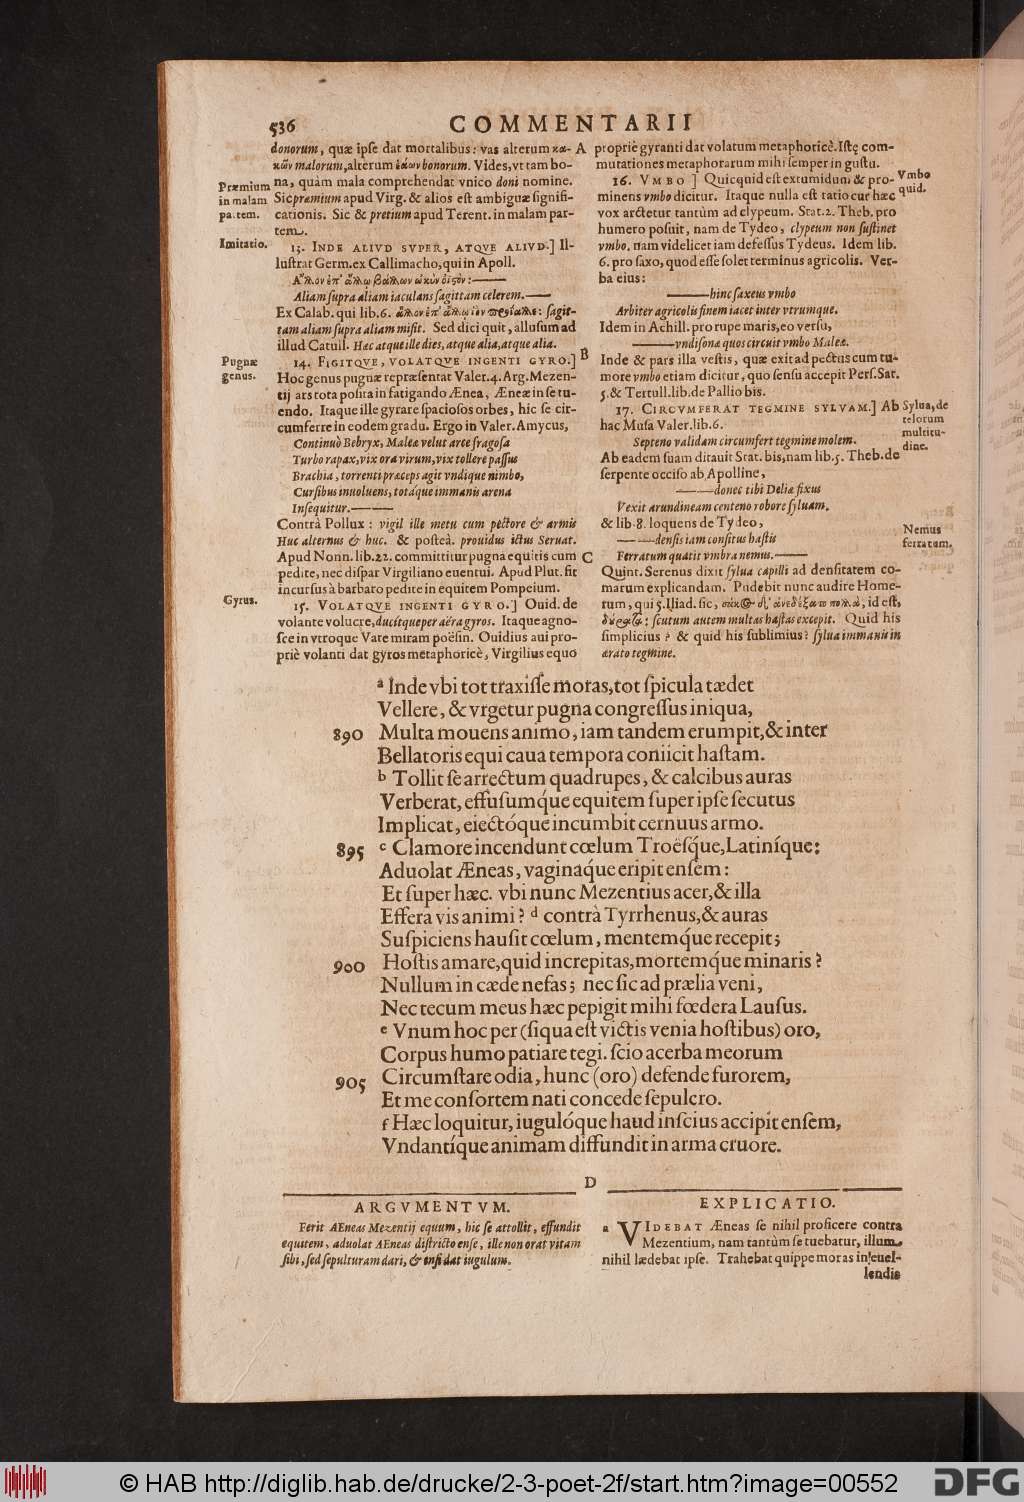 536 COMMENTARII
donorum, quæ ipſe dat mortalibus: vas alterum κα-
κῶν malorum, alterum ἐάων bonorum. Vides, vt tam bo-
na, quàm mala comprehendat vnico doni nomine.
Præmium
in malam
partem.
Sic præmium apud Virg. & alios eſt ambiguæ ſignifi-
cationis. Sic & pretium apud Terent. in malam par-
tem.
Imitatio.
13. INDE ALIVD SVPER, ATQVE ALIVD.] Il-
luſtrat Germ. ex Callimacho, qui in Apoll.
Ἄλλον ἐπ' ἄλλῳ βάλλων ὠκὺν ὀϊστόν:
Aliam ſupra aliam iaculans ſagittam celerem.
Ex Calab. qui lib. 6. ἄλλον ἐπ' ἄλλῳ ἰὸν προΐαλλε: ſagit-
tam aliam ſupra aliam miſit. Sed dici quit, alluſum ad
illud Catull. Hæc atque ille dies, atque alia, atque alia.
Pugnæ
genus.
14. FIGITQVE, VOLATQVE INGENTI GYRO.]
Hoc genus pugnæ repræſentat Valer. 4. Arg. Mezen-
tij ars tota poſita in fatigando Ænea, Æneæ in ſe tu-
endo. Itaque ille gyrare ſpacioſos orbes, hic ſe cir-
cumferre in eodem gradu. Ergo in Valer. Amycus,
Continuò Bebryx, Maleæ velut arce fragoſa
Turbo rapax, vix ora virum, vix tollere paſſus
Brachia, torrenti præceps agit vndique nimbo,
Curſibus inuoluens, totáque immanis arena
Inſequitur.
Contrà Pollux: vigil ille metu cum pectore & armis
Huc alternus & huc. & poſteà. prouidus ictus Seruat.
Apud Nonn. lib. 22. committitur pugna equitis cum
pedite, nec diſpar Virgiliano euentui. Apud Plut. fit
incurſus à barbaro pedite in equitem Pompeium.
Gyrus.
15. VOLATQVE INGENTI GYRO.] Ouid. de
volante volucre, ducítque per aëra gyros. Itaque agno-
ſce in vtroque Vate miram poëſin. Ouidius aui pro-
priè volanti dat gyros metaphoricè, Virgilius equo
A
B
C
propriè gyranti dat volatum metaphoricè. Iſtę com-
mutationes metaphorarum mihi ſemper in guſtu.
16. VMBO] Quicquid eſt extumidum & pro-
Vmbo
quid.
minens vmbo dicitur. Itaque nulla eſt ratio cur hæc
vox arctetur tantùm ad clypeum. Stat. 2. Theb. pro
humero poſuit, nam de Tydeo, clypeum non ſuſtinet
vmbo. nam videlicet iam defeſſus Tydeus. Idem lib.
6. pro ſaxo, quod eſſe ſolet terminus agricolis. Ver-
ba eius:
hinc ſaxeus vmbo
Arbiter agricolis finem iacet inter vtrumque.
Idem in Achill. pro rupe maris, eo verſu,
vndiſonæ quos circuit vmbo Maleæ.
Inde & pars illa veſtis, quæ exit ad pectus cum tu-
more vmbo etiam dicitur, quo ſenſu accepit Perſ. Sat.
5. & Tertull. lib. de Pallio bis.
17. CIRCVMFERAT TEGMINE SYLVAM.] Ab
Sylua, de
telorum
multitu-
dine.
hac Muſa Valer. lib. 6.
Septeno validam circumfert tegmine molem.
Ab eadem ſuam ditauit Stat. bis, nam lib. 5. Theb. de
ſerpente occiſo ab Apolline,
donec tibi Deliæ fixus
Vexit arundineam centeno robore ſyluam.
& lib. 8. loquens de Tydeo,
Nemus
ferratum.
denſis iam conſitus haſtis
Ferratum quatit vmbra nemus.
Quint. Serenus dixit ſylua capilli ad denſitatem co-
marum explicandam. Pudebit nunc audire Home-
rum, qui 5. Iliad. ſic, σάκος δ' ἀνεδέξατο πολλά, id eſt,
δύρατα: ſcutum autem multas haſtas excepit. Quid his
ſimplicius? & quid his ſublimius? ſylua immanis in
ærato tegmine.
a Inde vbi tot traxiſſe moras, tot ſpicula tædet
Vellere, & vrgetur pugna congreſſus iniqua,
890 Multa mouens animo, iam tandem erumpit, & inter
Bellatoris equi caua tempora coniicit haſtam.
b Tollit ſe arrectum quadrupes, & calcibus auras
Verberat, effuſumq́ue equitem ſuper ipſe ſecutus
Implicat, eiectóque incumbit cernuus armo.
895 c Clamore incendunt cœlum Troëſq́ue, Latiníque:
Aduolat Æneas, vaginaq́ue eripit enſem:
Et ſuper hæc. vbi nunc Mezentius acer, & illa
Effera vis animi? d contrà Tyrrhenus, & auras
Suſpiciens hauſit cœlum, mentemq́ue recepit;
900 Hoſtis amare, quid increpitas, mortemq́ue minaris?
Nullum in cæde nefas; nec ſic ad prælia veni,
Nec tecum meus hæc pepigit mihi fœdera Lauſus.
e Vnum hoc per (ſiqua eſt victis venia hoſtibus) oro,
Corpus humo patiare tegi. ſcio acerba meorum
905 Circumſtare odia, hunc (oro) defende furorem,
Et me conſortem nati concede ſepulcro.
f Hæc loquitur, iugulóque haud inſcius accipit enſem,
Vndantíque animam diffundit in arma cruore.
D
ARGVMENTVM.
Ferit AEneas Mezentij equum, hic ſe attollit, effundit
equitem, aduolat AEneas diſtricto enſe, ille non orat vitam
ſibi, ſed ſepulturam dari, & enſi dat iugulum.
EXPLICATIO.
a VIDEBAT Æneas ſe nihil proficere contra
Mezentium, nam tantùm ſe tuebatur, illum
nihil lædebat ipſe. Trahebat quippe moras in euel-
lendis
© HAB http://diglib.hab.de/drucke/2-3-poet-2f/start.htm?image=00552 DFG